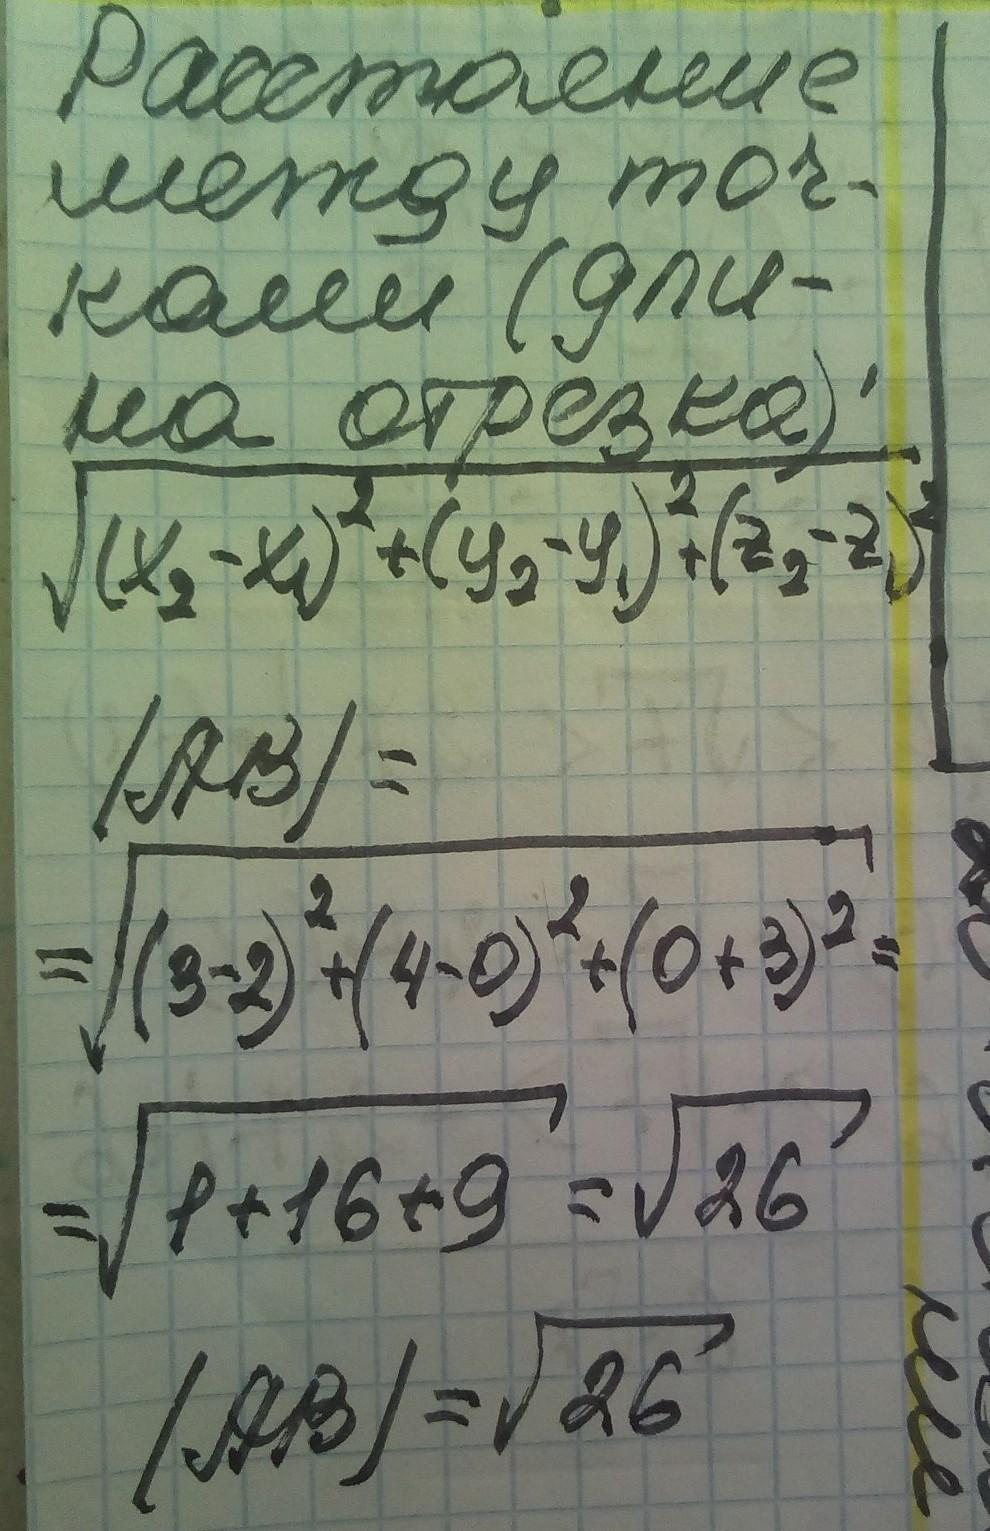 Расстояние
между точ-
ками (дли-
на отрезка):
√(x₂-x₁)²+(y₂-y₁)²+(z₂-z₁)²
|AB|=
=√(3-2)²+(4-0)²+(0+3)²=
=√1+16+9=√26
|AB|=√26